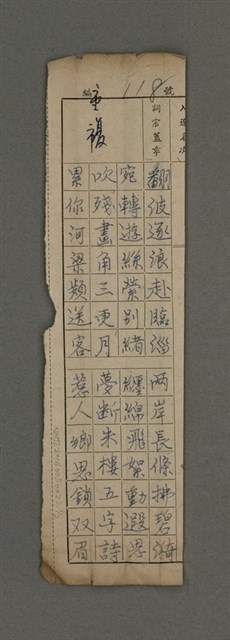 編 118 號
重複
詞宗蓋章
翻波逐浪赴臨淄 兩岸長條拂碧漪
宛轉遊絲縈別緒 纏綿飛絮動遐思
吹殘畫角三更月 夢斷朱樓五字詩
累你河梁頻送客 惹人鄉思鎖双眉